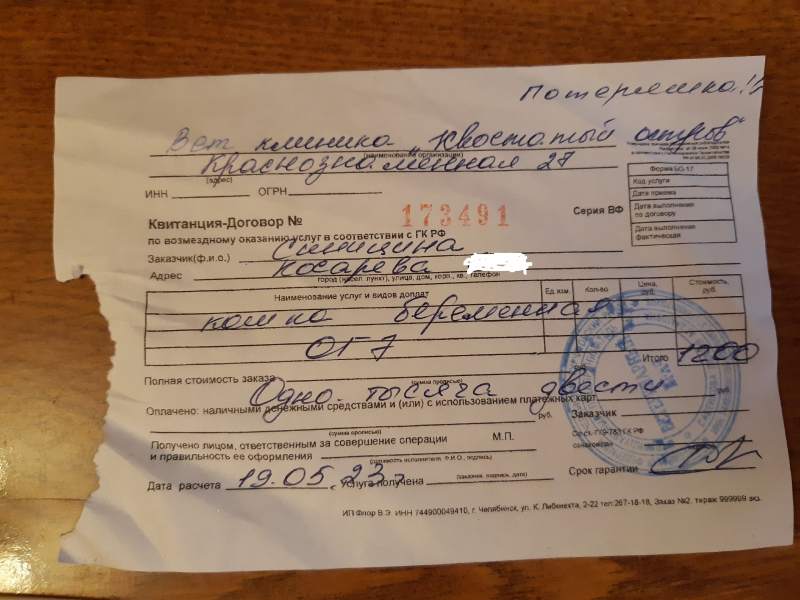 Потеряшка!!
Вет клиника "Квостатый остров"
(наименование организации)
Краснознаменная 27
(адрес)
ИНН ОГРН
Форма БО-17
Код услуги
Дата приема
Дата выполнения по договору
Дата выполнения фактическая
Квитанция-Договор № 173491 Серия ВФ
по возмездному оказанию услуг в соответствии с ГК РФ
Заказчик(ф.и.о.) Синицина
Адрес Косарева
город (насел. пункт), улица, дом, корп., кв., телефон
Наименование услуг и видов доплат Ед. изм. Кол-во Цена, руб. Стоимость, руб.
кошка беременная
ОГЭ
Итого 1200
Полная стоимость заказа Одно тысяча двести руб.
(сумма прописью)
Оплачено: наличными денежными средствами и (или) с использованием платежных карт
руб. Заказчик
(сумма прописью)
ознакомлен
Получено лицом, ответственным за совершение операции М.П.
и правильность ее оформления
(должность исполнителя, Ф.И.О., подпись)
Срок гарантии
Дата расчета 19.05.23г. Услуга получена
(заказчик, подпись, дата)
ИП Флор В.Э. ИНН 744900049410, г. Челябинск, ул. К. Либкнехта, 2-22 тел:267-18-18, Заказ №2. тираж 999999 экз.